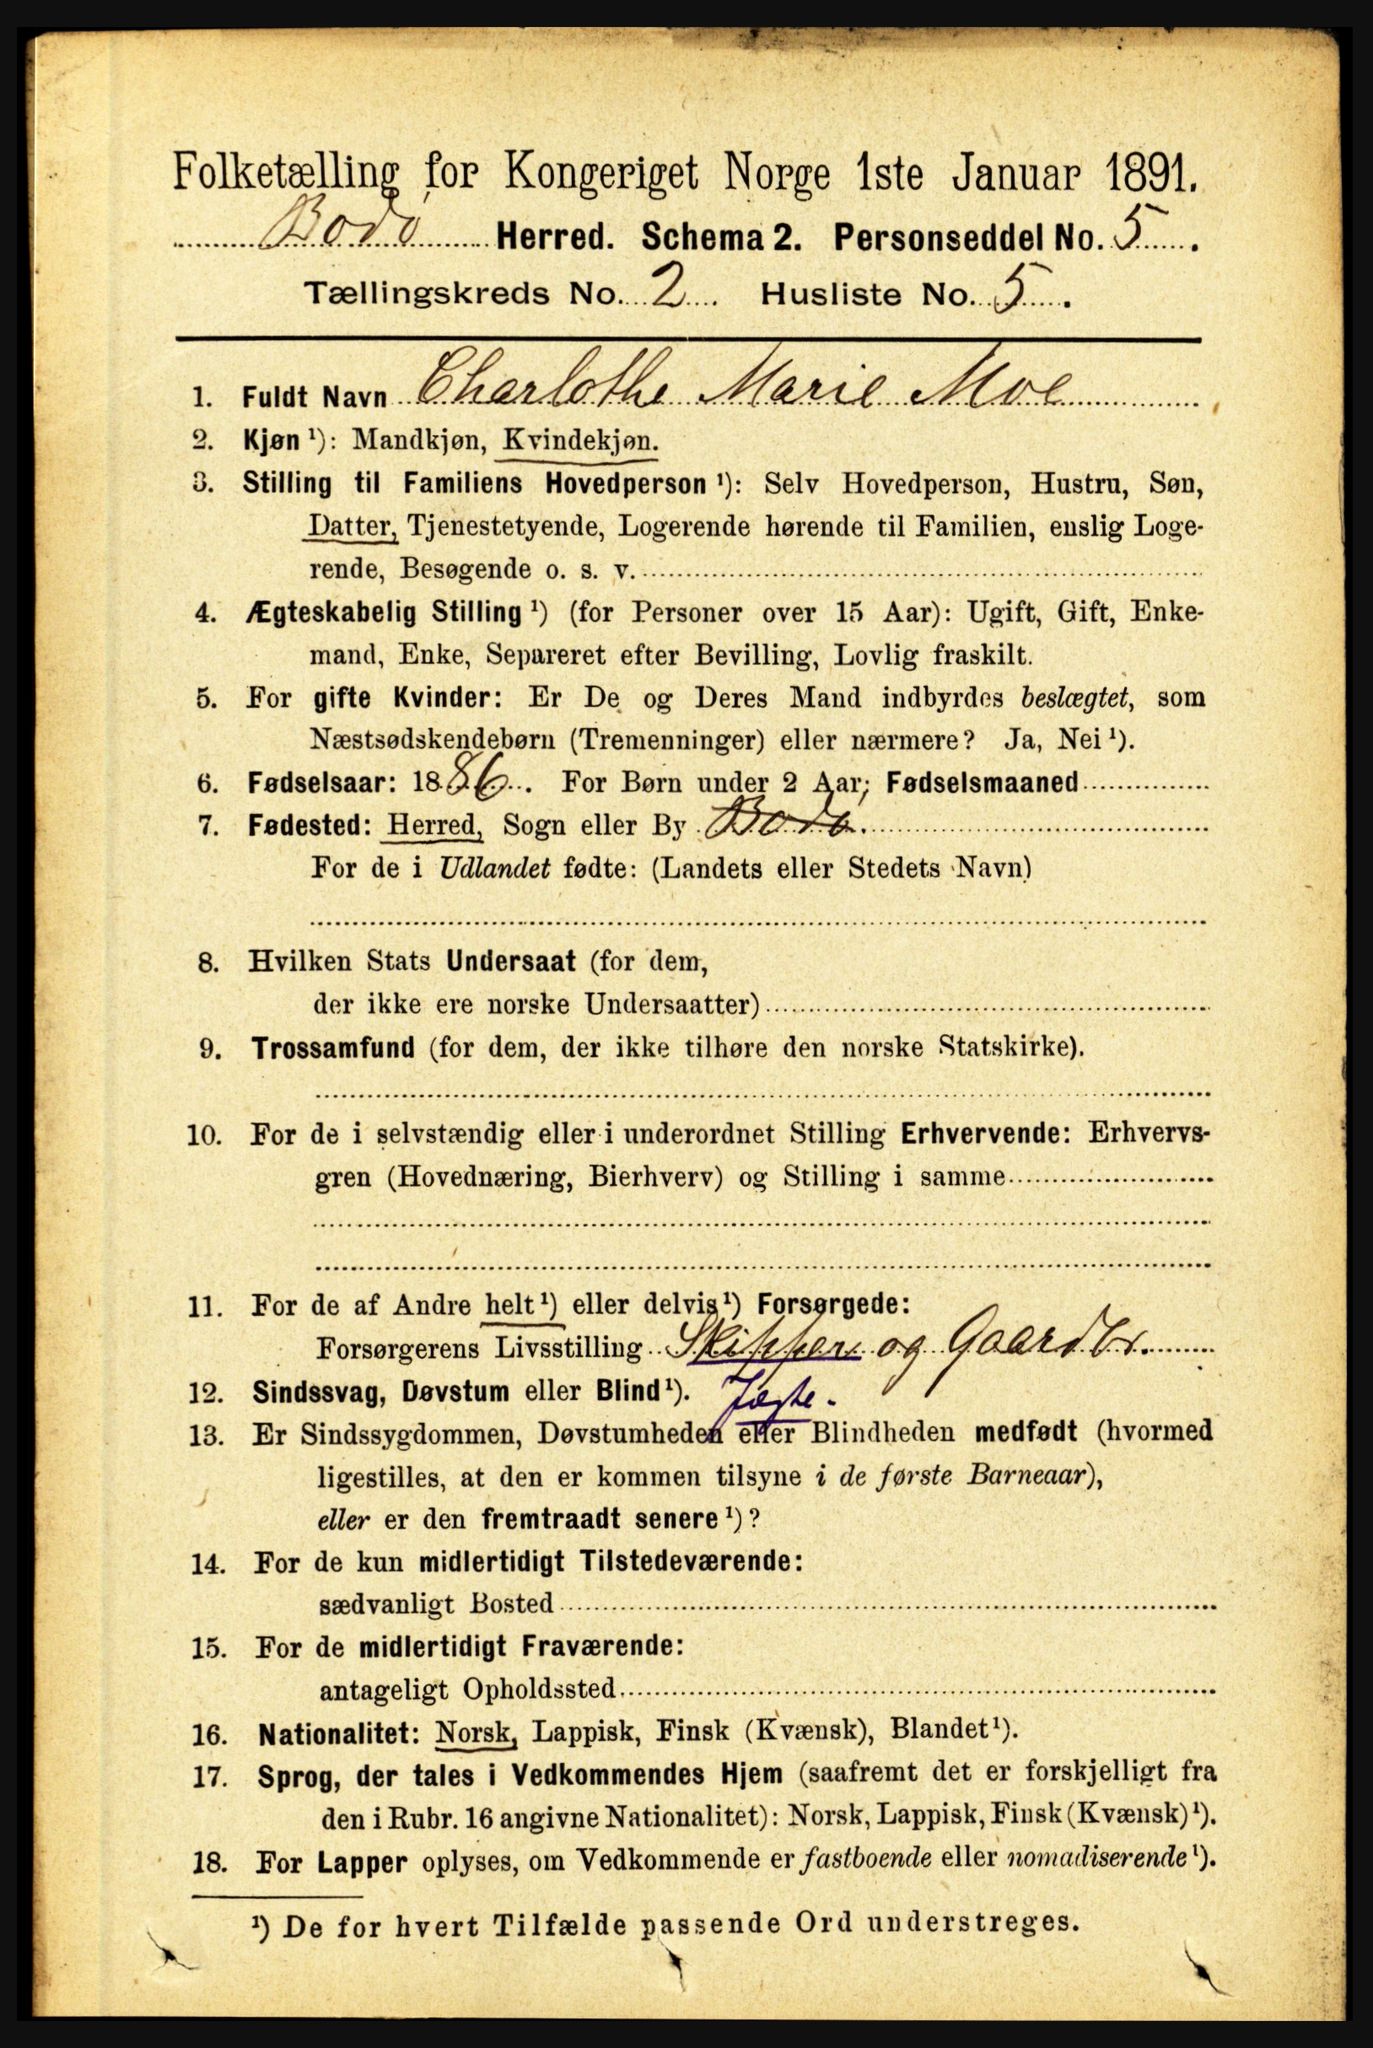 Folketælling for Kongeriget Norge 1ste Januar 1891.
Bodø Herred. Schema 2. Personseddel No. 5.
Tællingskreds No. 2. Husliste No. 5.
1. Fuldt Navn Charlothe Marie Moe
2. Kjøn ¹): Mandkjøn, Kvindekjøn.
3. Stilling til Familiens Hovedperson ¹): Selv Hovedperson, Hustru, Søn,
Datter, Tjenestetyende, Logerende hørende til Familien, enslig Loge-
rende, Besøgende o. s. v.
4. Ægteskabelig Stilling ¹) (for Personer over 15 Aar): Ugift, Gift, Enke-
mand, Enke, Separeret efter Bevilling, Lovlig fraskilt.
5. For gifte Kvinder: Er De og Deres Mand indbyrdes beslægtet, som
Næstsødskendebørn (Tremenninger) eller nærmere? Ja, Nei ¹).
6. Fødselsaar: 1886. For Børn under 2 Aar; Fødselsmaaned
7. Fødested: Herred, Sogn eller By Bodø.
For de i Udlandet fødte: (Landets eller Stedets Navn)
8. Hvilken Stats Undersaat (for dem,
der ikke ere norske Undersaatter)
9. Trossamfund (for dem, der ikke tilhøre den norske Statskirke).
10. For de i selvstændig eller i underordnet Stilling Erhvervende: Erhvervs-
gren (Hovednæring, Bierhverv) og Stilling i samme
11. For de af Andre helt ¹) eller delvis ¹) Forsørgede:
Forsørgerens Livsstilling Skipper og Gaardbr.
12. Sindssvag, Døvstum eller Blind ¹). Jægte.
13. Er Sindssygdommen, Døvstumheden eller Blindheden medfødt (hvormed
ligestilles, at den er kommen tilsyne i de første Barneaar),
eller er den fremtraadt senere ¹)?
14. For de kun midlertidigt Tilstedeværende:
sædvanligt Bosted
15. For de midlertidigt Fraværende:
antageligt Opholdssted
16. Nationalitet: Norsk, Lappisk, Finsk (Kvænsk), Blandet ¹).
17. Sprog, der tales i Vedkommendes Hjem (saafremt det er forskjelligt fra
den i Rubr. 16 angivne Nationalitet): Norsk, Lappisk, Finsk (Kvænsk) ¹).
18. For Lapper oplyses, om Vedkommende er fastboende eller nomadiserende ¹).
¹) De for hvert Tilfælde passende Ord understreges.